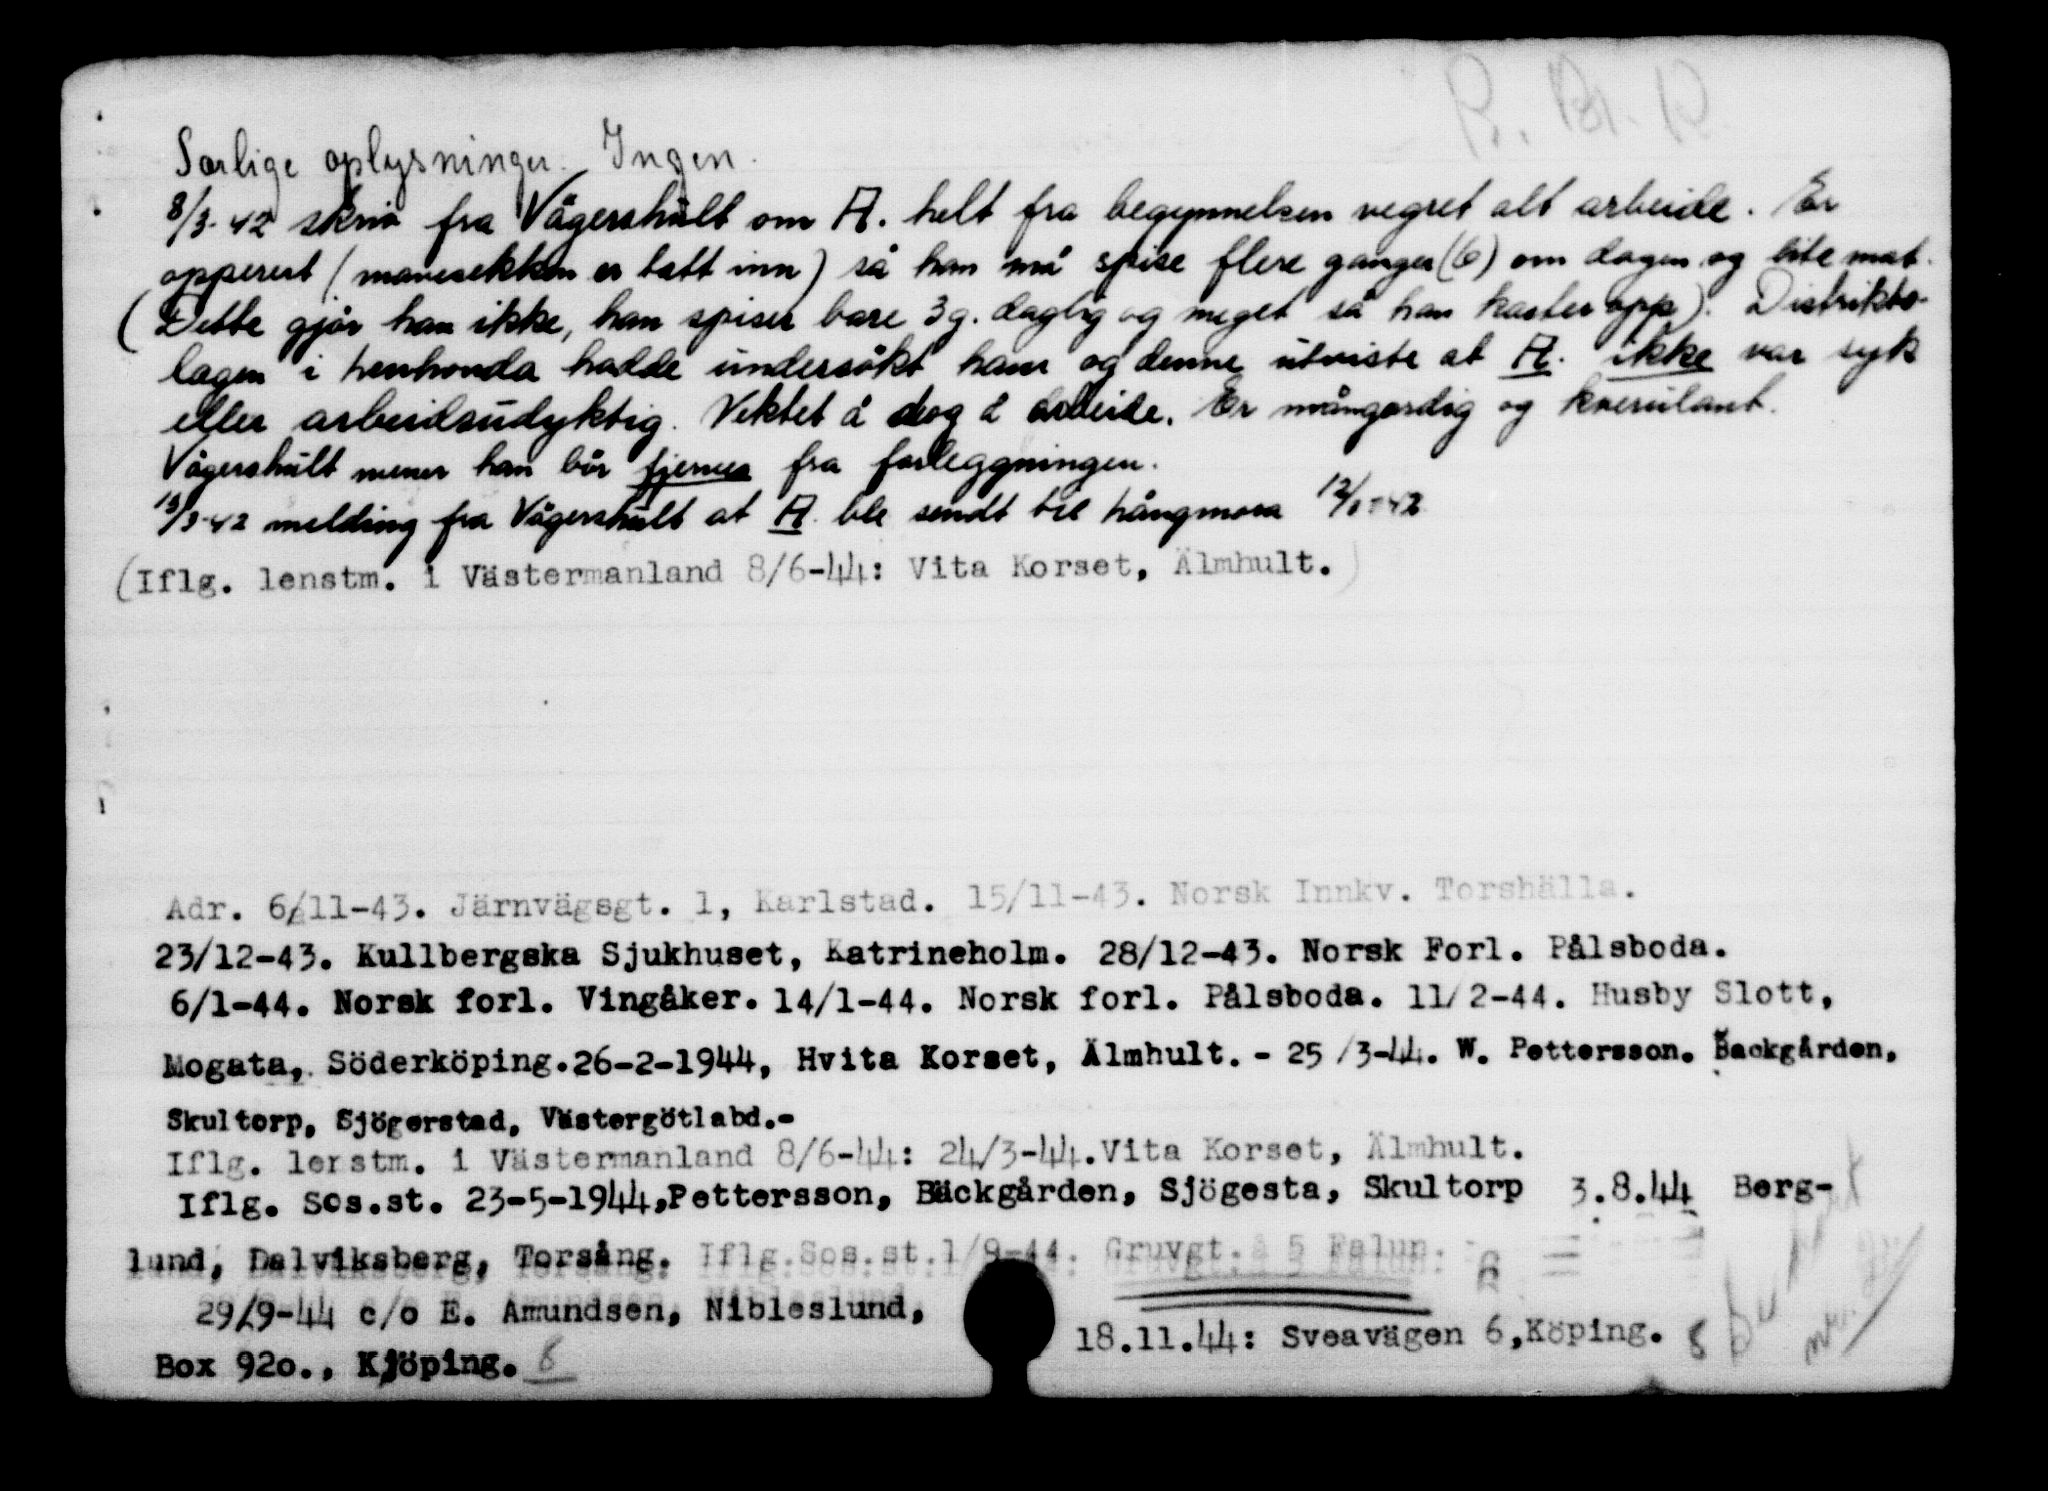 R. Bl. R.
Særlige oplysninger. Ingen.
8/3-42 skriv fra Vågershult om A. helt fra begynnelsen vegret alt arbeide. Er
opperert (mavesekken er tatt inn) så han må spise flere ganger (6) om dagen og lite mat.
(Dette gjör han ikke, han spiser bare 3 g. daglig og meget så han kaster opp). Distrikts-
legen i hadde undersökt ham og denne utviste at A. ikke var syk
eller arbeidsudyktig. Vektet å dog å arbeide. Er mångordig og kverulant.
Vågershult mener han bör fjernes fra forleggningen.
13/3-42 melding fra Vågershult at A. ble sendt til hångmora 12/
(Iflg. lenstm. i Västermanland 8/6-44: Vita Korset, Älmhult.)
Adr. 6/11-43. Järnvägsgt. 1, Karlstad. 15/11-43. Norsk Innkv. Torshälla.
23/12-43. Kullbergska Sjukhuset, Katrineholm. 28/12-43. Norsk Forl. Pålsboda.
6/1-44. Norsk forl. Vingåker. 14/1-44. Norsk forl. Pålsboda. 11/2-44. Husby Slott,
Mogata, Söderköping.26-2-1944, Hvita Korset, Älmhult. - 25 /3-44. W. Pettersson. Backgården,
Skultorp, Sjögerstad, Västergötlabd.-
Iflg. lenstm. i Västermanland 8/6-44: 24/3-44.Vita Korset, Älmhult.
Iflg. Sos.st. 23-5-1944,Pettersson, Bäckgården, Sjögesta, Skultorp 3.8.44 Berg-
lund, Dalviksberg, Torsång. Iflg.Sos.st.1/9-44. Gruvgt. 5 Falun.
29/9-44 c/o E. Amundsen, Nibleslund,
18.11.44: Sveavägen 6,Köping. 8
Box 92o., Kjöping. 8